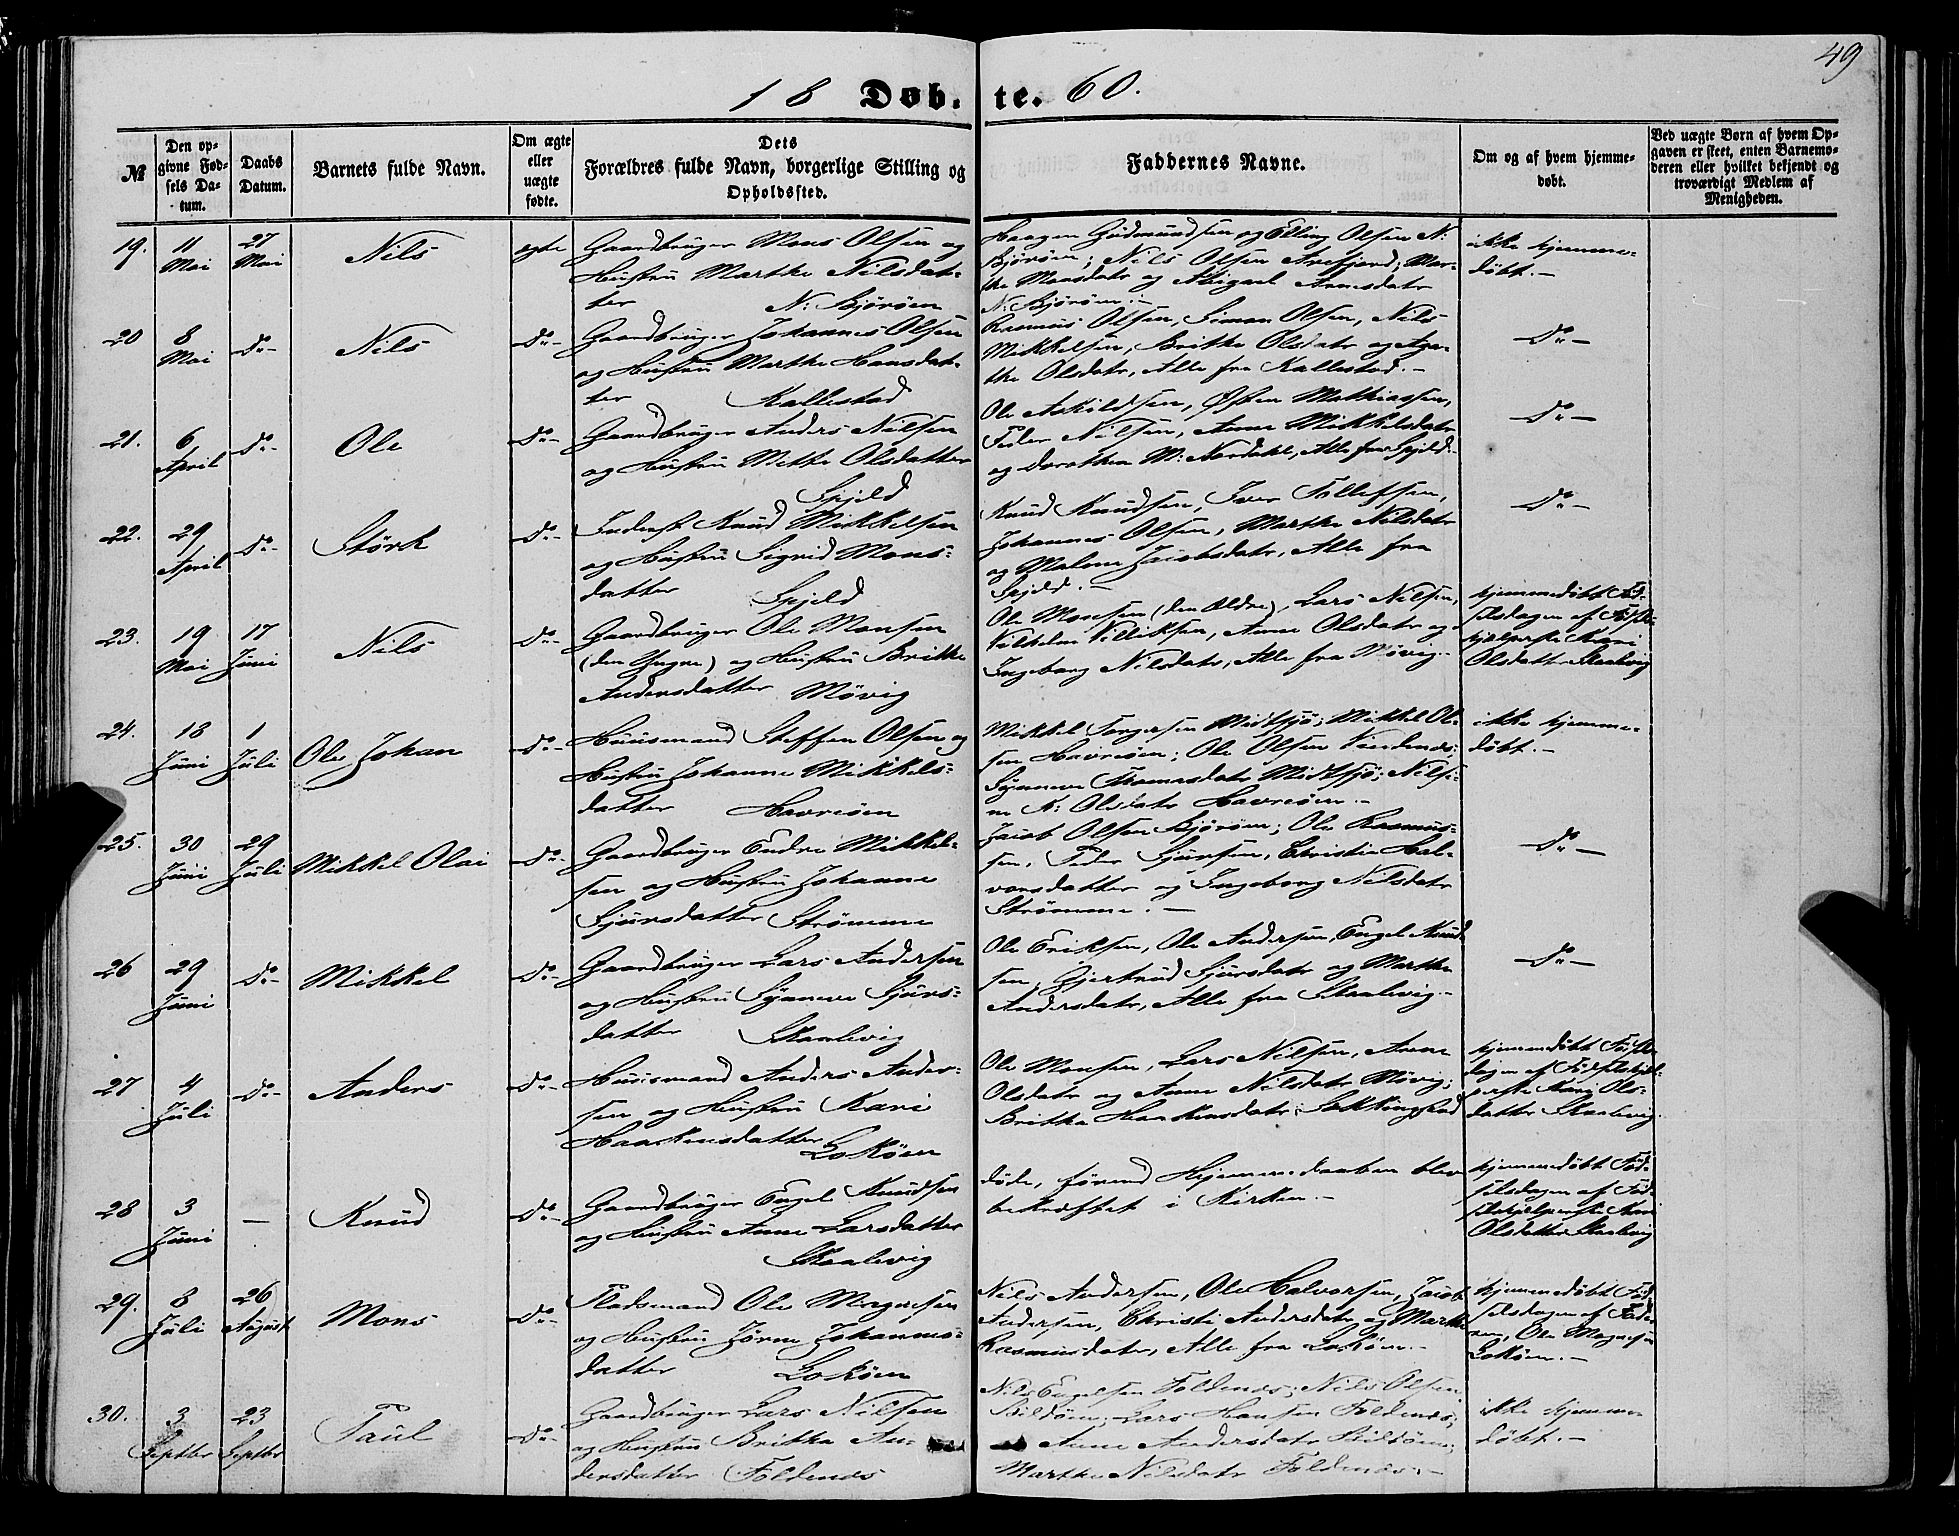 49
18 Døb- te. 60.
№
Den op-
givne Fød-
sels Da-
tum.
Daabs
Datum.
Barnets fulde Navn.
Om ægte
eller
uægte
fødte.
Dets
Forældres fulde Navn, borgerlige Stilling og
Opholdssted.
Faddernes Navne.
Om og af hvem hjemme-
døbt.
Ved uægte Børn af hvem Op-
gaven er skeet, enten Barnemo-
deren eller hvilket bekjendt og
troværdigt Medlem af
Menigheden.
19.
11
Mai
27
Mai
Nils
egte
Gaardbruger Mons Olsen og
Hustru Marthe Nilsdat-
ter N: Bjørøen
Haagen Gudmundsen og Elling Olsen N:
Bjørøen; Nils Olsen Arefjord; Mar-
the Monsdatr og Abigael Arnesdatr
N: Bjørøen.-
ikke hjemme-
døbt.-
20
8
Mai
Do-
Nils
Do-
Gaardbruger Johannes Olsen
og Hustru Marthe Hansdat-
ter Kallestad
Rasmus Olsen, Simon Olsen, Nils
Mikkelsen, Britha Olsdatr og Aga-
the Olsdatr, Alle fra Kallestad.-
Do-
21.
6
April
Do-
Ole
Do-
Gaardbruger Anders Nilsen
og Hustru Mette Olsdatter
Spjeld
Ole Askildsen, Østen Mathiassen,
Peder Nilsen, Anne Mikkelsdatr
og Dorothea M: Nordahl, Alle fra Spjeld.-
Do-
22.
29
April
Do-
Størk
Do-
Inderst Knud Mikkelsen
og Hustru Sigrid Mons-
datter Spjeld
Knud Knudsen, Iver Tollefsen,
Johannes Olsen, Marthe Nilsdatr
og Malene Jacobsdatr, Alle fra
Spjeld.-
Do-
23.
19
Mai
17
Juni
Nils
Do-
Gaardbruger Ole Monsen
(den Yngre) og Hustru Brithe
Andersdatter Møvig
Ole Monsen (den Ældre), Lars Nilsen,
Vilhelm Villiksen, Anne Olsdatr og
Ingeborg Nilsdatr, Alle fra Møvig.-
hjemmedøbt Fød-
selsdagen af Fødsels-
hjælperske Kari
Olsdatter Skaalevig
24.
18
Juni
1
Juli
Ole Johan
Do-
Huusmand Steffen Olsen og
Hustru Johanne Mikkels-
datter Havreøen
Mikkel Torgersen Midtsjø; Mikkel Ol-
sen Havreøen; Ole Olsen Vindenes;
Synneve Thomasdatr Midtsjø; Nilsi-
ne K: Olsdatr Havreøen.-
ikke hjemme-
døbt.-
25.
30
Juni
29
Juli
Mikkel Olai
Do-
Gaardbruger Endre Mikkel-
sen og Hustru Johanne
Sjursdatter Strømme
Jacob Olsen Bjørøen; Ole Rasmus-
sen, Peder Sjursen, Christie Hal-
vorsdatter og Ingeborg Nilsdatr
Strømme.-
Do-
26
29
Juni
Do-
Mikkel
Do-
Gaardbruger Lars Andersen
og Hustru Synneve Sjurs-
datter Skaalevig
Ole Eriksen, Ole Andersen, Engel Knud-
sen, Gjertrud Sjursdatr og Marthe
Andersdatr, Alle fra Skaalevig.-
Do-
27
4
Juli
Do-
Anders
Do-
Huusmand Anders Anders-
sen og Hustru Kari
Haackensdatter Lokøen
Ole Monsen, Lars Nilsen, Anne
Olsdatr og Anne Nilsdatr Møvig;
Britha Haakensdatr Sekkingstad
hjemmedøbt Fødsels-
dagen af Fødselshjæl-
perske Kari Ols-
datter Skaalevig.
28
3
Juni
-
Knud
Do-
Gaardbruger Engel Knudsen
og Hustru Anne Larsdatter
Skaalevig
døde, førend Hjemmedaaben blev
bekræftet i Kirken.-
hjemmedøbt Fød-
selsdagen af Fød-
selshjælperske Kari
Olsdatter Skaalevig
29.
8
Juli
26
August
Mons
Do-
Pladsmand Ole Magnesen
og Hustru Jørne Johannes-
datter Lokøen
Nils Andersen, Ole Halvorsen, Jacob
Andersen, Christi Andersdatr og Marthe
Rasmusdatr, Alle fra Lokøen.-
hjemmedøbt Fød-
selsdagen af Fade-
ren, Ole Magnesen
Lokøen.-
30.
3
Septbr
23
Septbr
Paul
Do-
Gaardbruger Lars Nilsen
og Hustru Britha An-
dersdatter Foldenæs
Nils Engelsen Foldenæs; Nils Olsen
Bildøen; Lars Hansen Foldenæs;
Anne Andersdatr Bildøen;
Marthe Nilsdatr Foldenæs.-
ikke hjemme-
døbt.-